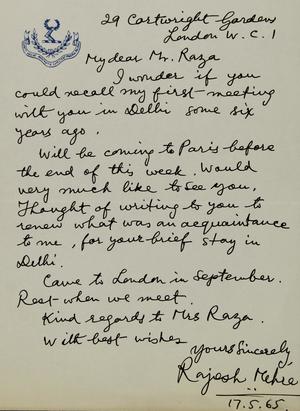 29 Cartwright Gardens
London W.C.1
My dear Mr. Raza
I wonder if you
could recall my first meeting
with you in Delhi some six
years ago.
Will be coming to Paris before
the end of this week. Would
very much like to see you,
Thought of writing to you to
renew what was an acquaintance
to me, for your brief stay in
Delhi.
Came to London in September.
Rest when we meet.
Kind regards to Mrs Raza.
With best wishes
Yours Sincerely,
Rajesh Mehra
17.5.65.